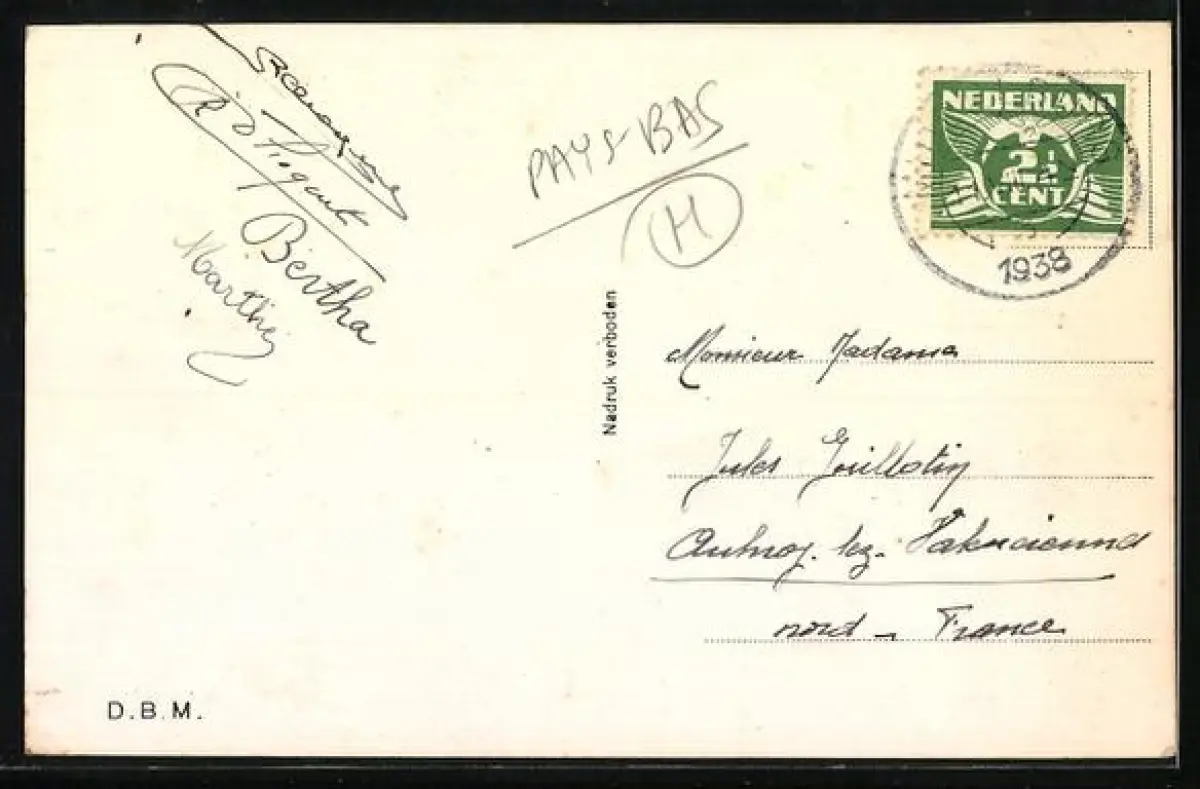 Bertha
Marthe
PAYS-BAS
H
NEDERLAND
2½
CENT
1938
Nadruk verboden
Monsieur Madame
Jules Guillotin
Aulnoy. lez. Valenciennes
nord - France
D.B.M.